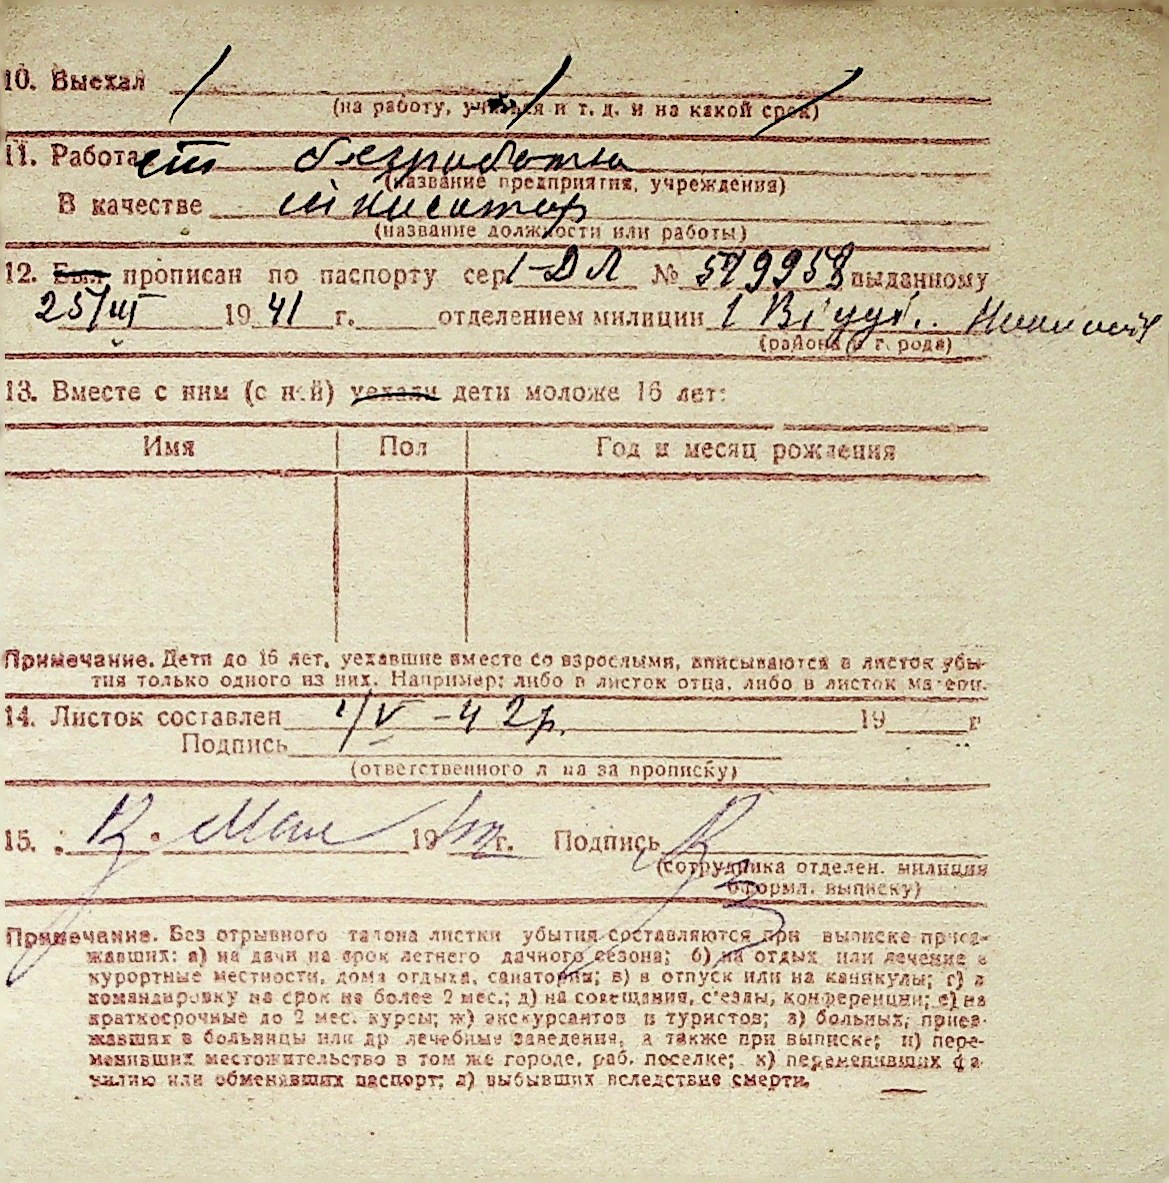 10. Выехал
(на работу, учиться и т. д. и на какой срок)
11. Работает
(название предприятия, учреждения)
В качестве
(название должности или работы)
12. Был прописан по паспорту сер. 1-ДЛ № 519958 выданному
25/III 1941 г. отделением милиции 1 Від
(района и города)
13. Вместе с ним (с ней) уехали дети моложе 16 лет:
Имя Пол Год и месяц рождения
Примечание. Дети до 16 лет, уехавшие вместе со взрослыми, вписываются в листок убы-
тия только одного из них. Например: либо в листок отца, либо в листок матери.
14. Листок составлен 1/V-42р. 19 г
Подпись
(ответственного лица за прописку)
15. мая 19 г. Подпись
(сотрудника отделен. милиции
оформл. выписку)
Примечание. Без отрывного талона листки убытия составляются при выписке приез-
жавших: а) на дачи на срок летнего дачного сезона; б) на отдых или лечение в
курортные местности, дома отдыха, санатории; в) в отпуск или на каникулы; г) в
командировку на срок не более 2 мес.; д) на совещания, с'езды, конференции; е) на
краткосрочные до 2 мес. курсы; ж) экскурсантов и туристов; з) больных, приез-
жавших в больницы или др лечебные заведения, а также при выписке; и) пере-
менивших местожительство в том же городе, раб. поселке; к) переменивших фа-
милию или обменявших паспорт; л) выбывших вследствие смерти.